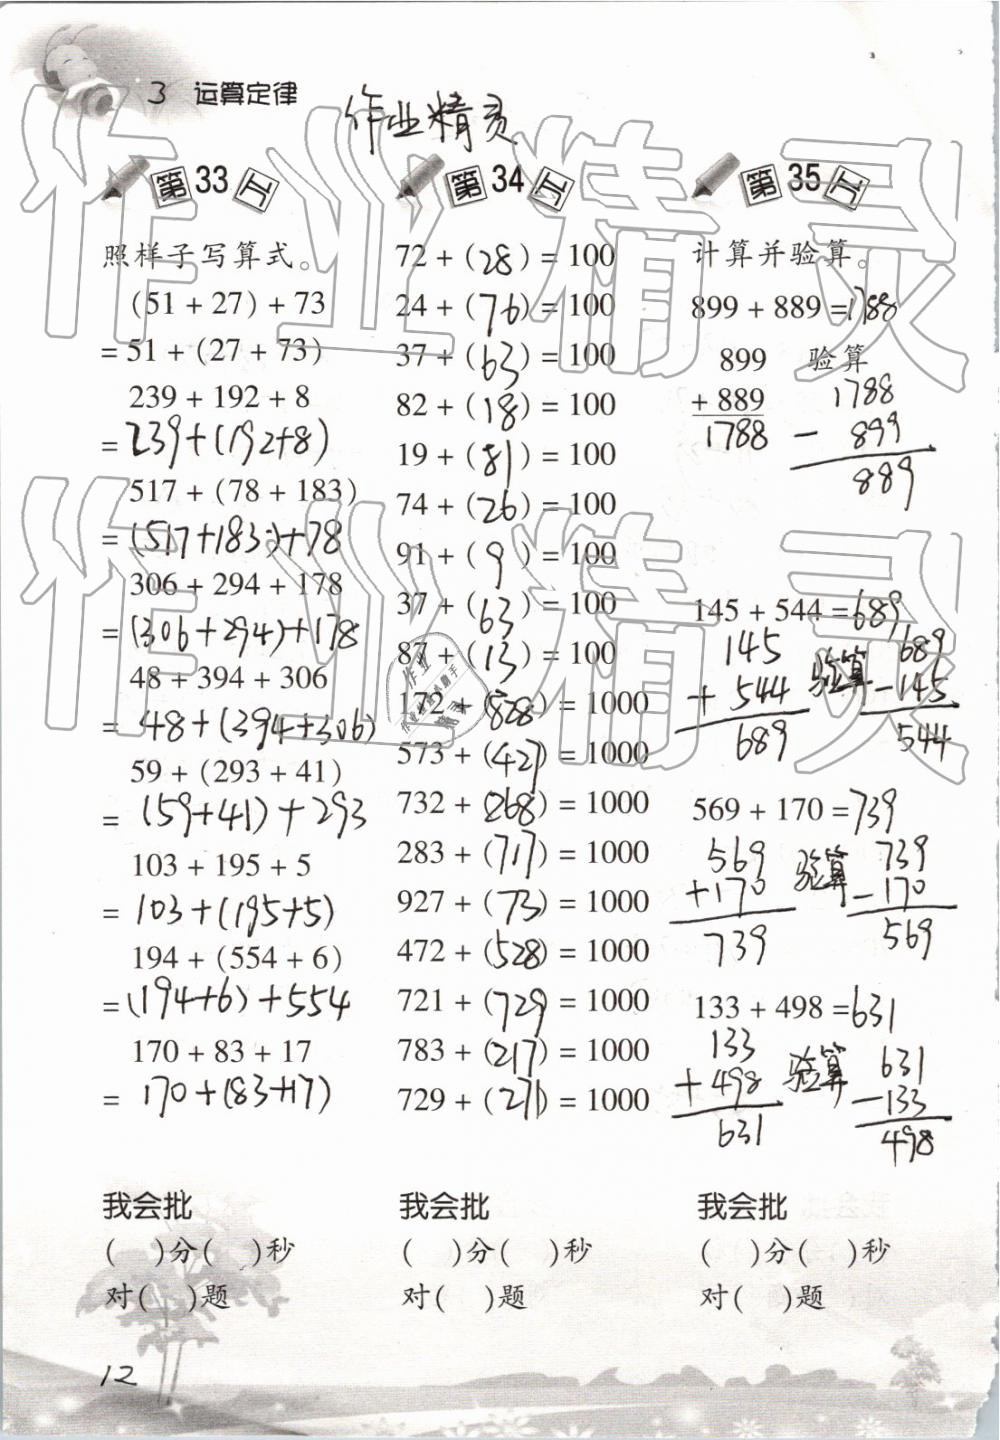 3 运算定律
作业精灵
第33工
照样子写算式。
(51 + 27) + 73
= 51 + (27 + 73)
239 + 192 + 8
= 239+(192+8)
517 + (78 + 183)
= (517+183)+78
306 + 294 + 178
= (306+294)+178
48 + 394 + 306
= 48+(394+306)
59 + (293 + 41)
= (59+41)+293
103 + 195 + 5
= 103+(195+5)
194 + (554 + 6)
= (194+6)+554
170 + 83 + 17
= 170+(83+17)
我会批
(  )分(  )秒
对(  )题
第34工
72 + (28) = 100
24 + (76) = 100
37 + (63) = 100
82 + (18) = 100
19 + (81) = 100
74 + (26) = 100
91 + (9) = 100
37 + (63) = 100
87 + (13) = 100
172 + (828) = 1000
573 + (427) = 1000
732 + (268) = 1000
283 + (717) = 1000
927 + (73) = 1000
472 + (528) = 1000
721 + (729) = 1000
783 + (217) = 1000
729 + (271) = 1000
我会批
(  )分(  )秒
对(  )题
第35工
计算并验算。
899 + 889 =1788
899 验算
+ 889 1788
1788 - 899
889
145 + 544 =689
145 验算 689
+ 544 -145
689 544
569 + 170 =739
569 验算 739
+170 -170
739 569
133 + 498 =631
133 验算 631
+498 -133
631 498
我会批
(  )分(  )秒
对(  )题
12
作业精灵
作业精灵